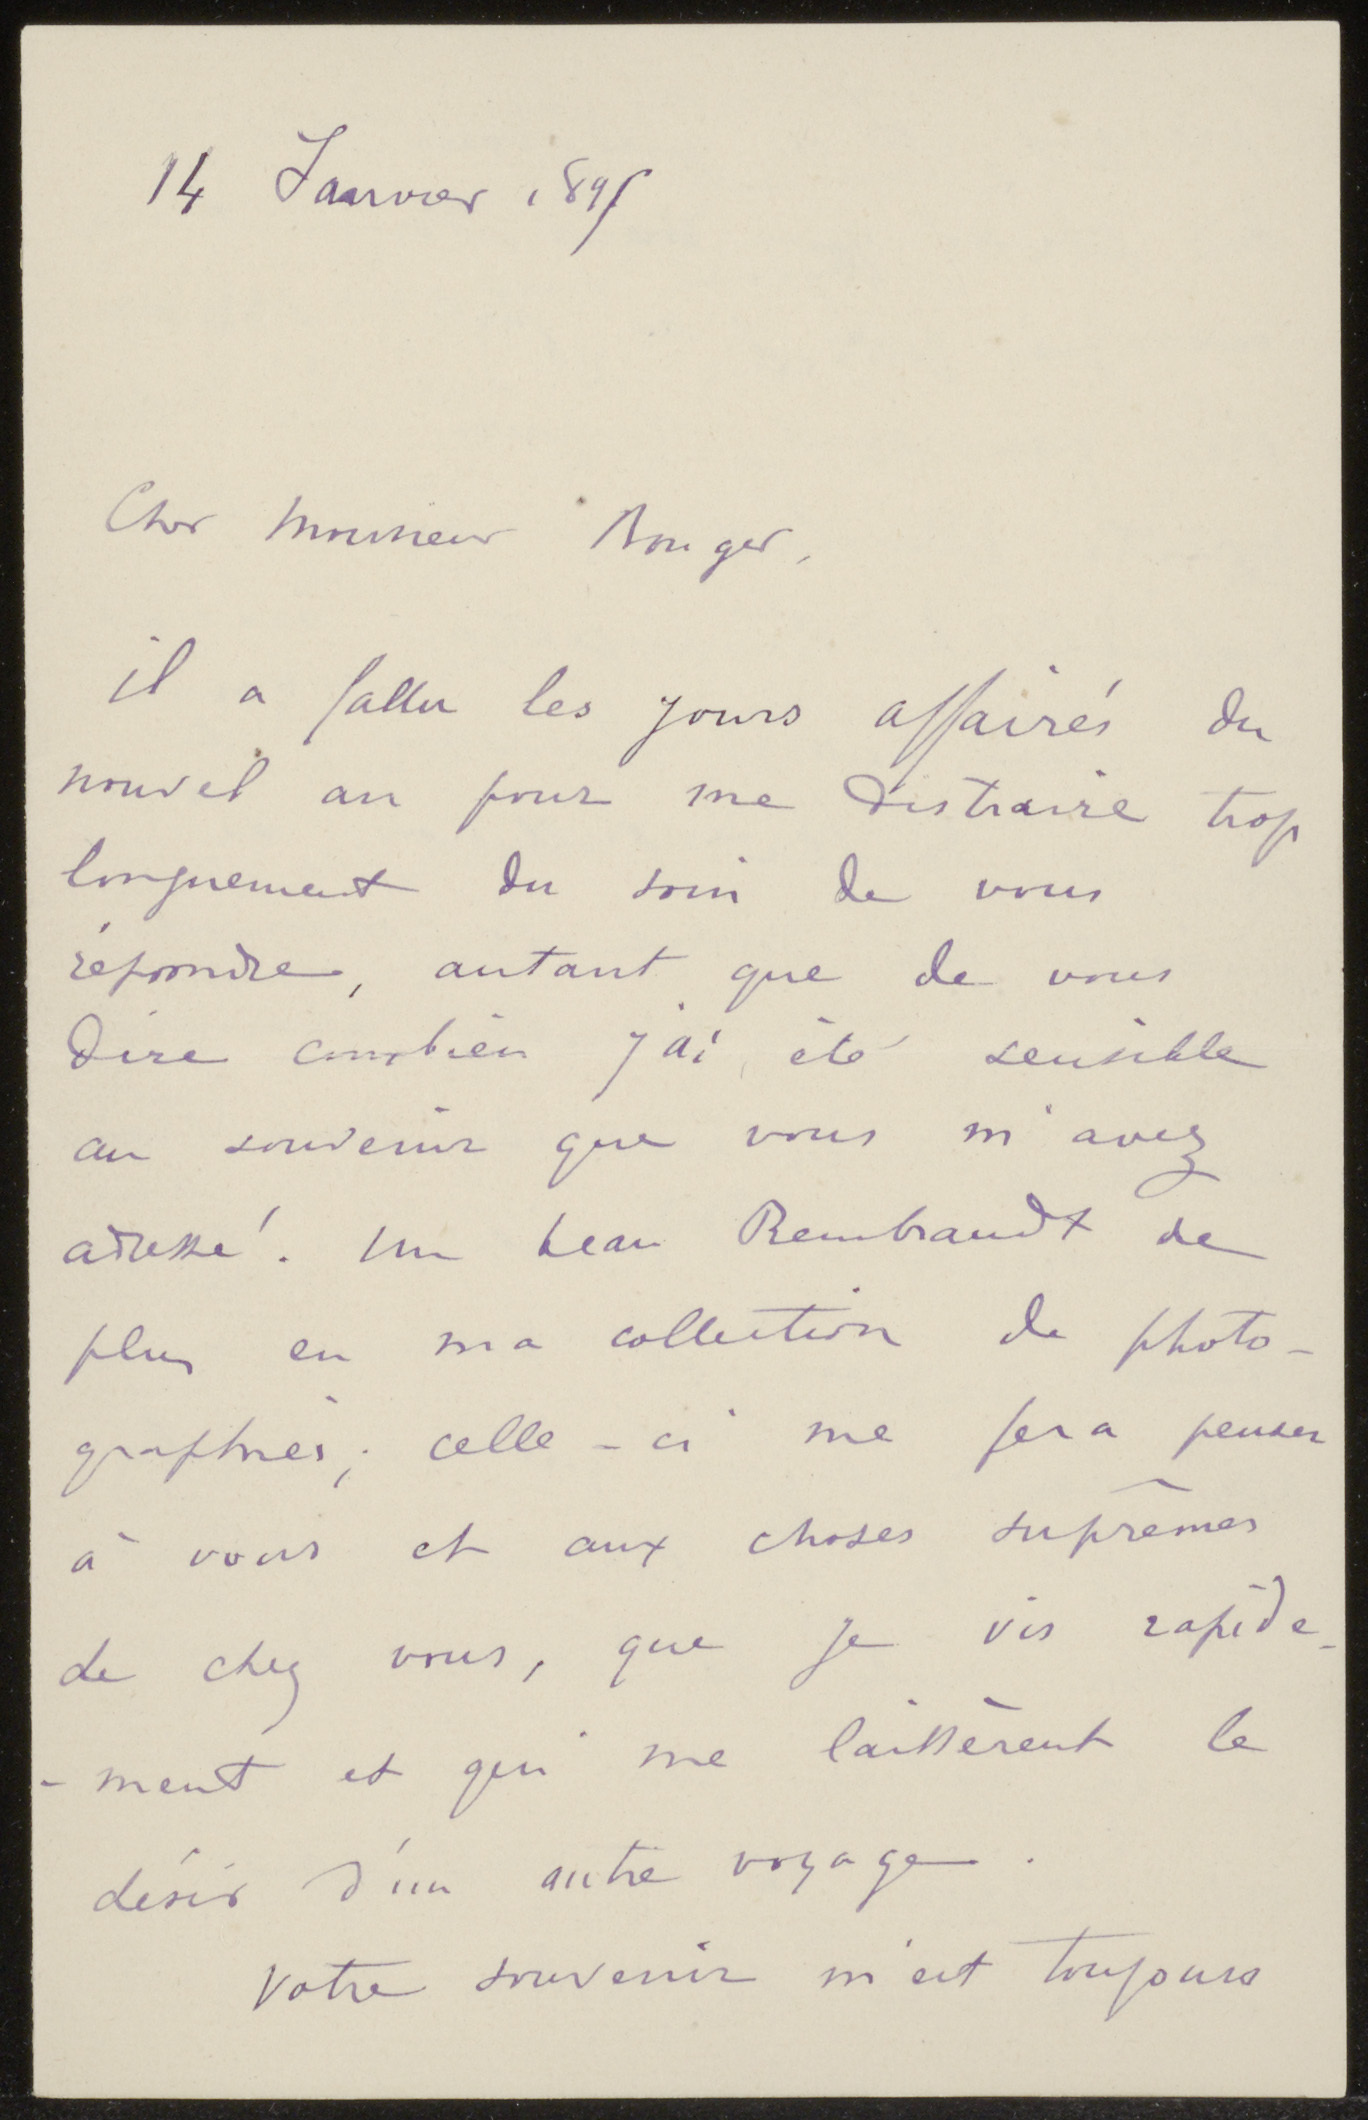 14 Janvier 1895
Cher Monsieur Bonger,
il a fallu les jours affairés du
nouvel an pour me distraire trop
longuement du soin de vous
répondre, autant que de vous
dire combien j'ai été sensible
au souvenir que vous m'avez
adressé. Un beau Rembrandt de
plus en ma collection de photo-
graphies; celle-ci me fera penser
à vous et aux choses suprêmes
de chez vous, que je vis rapide-
-ment et qui me laissèrent le
désir d'un autre voyage.
Votre souvenir m'est toujours